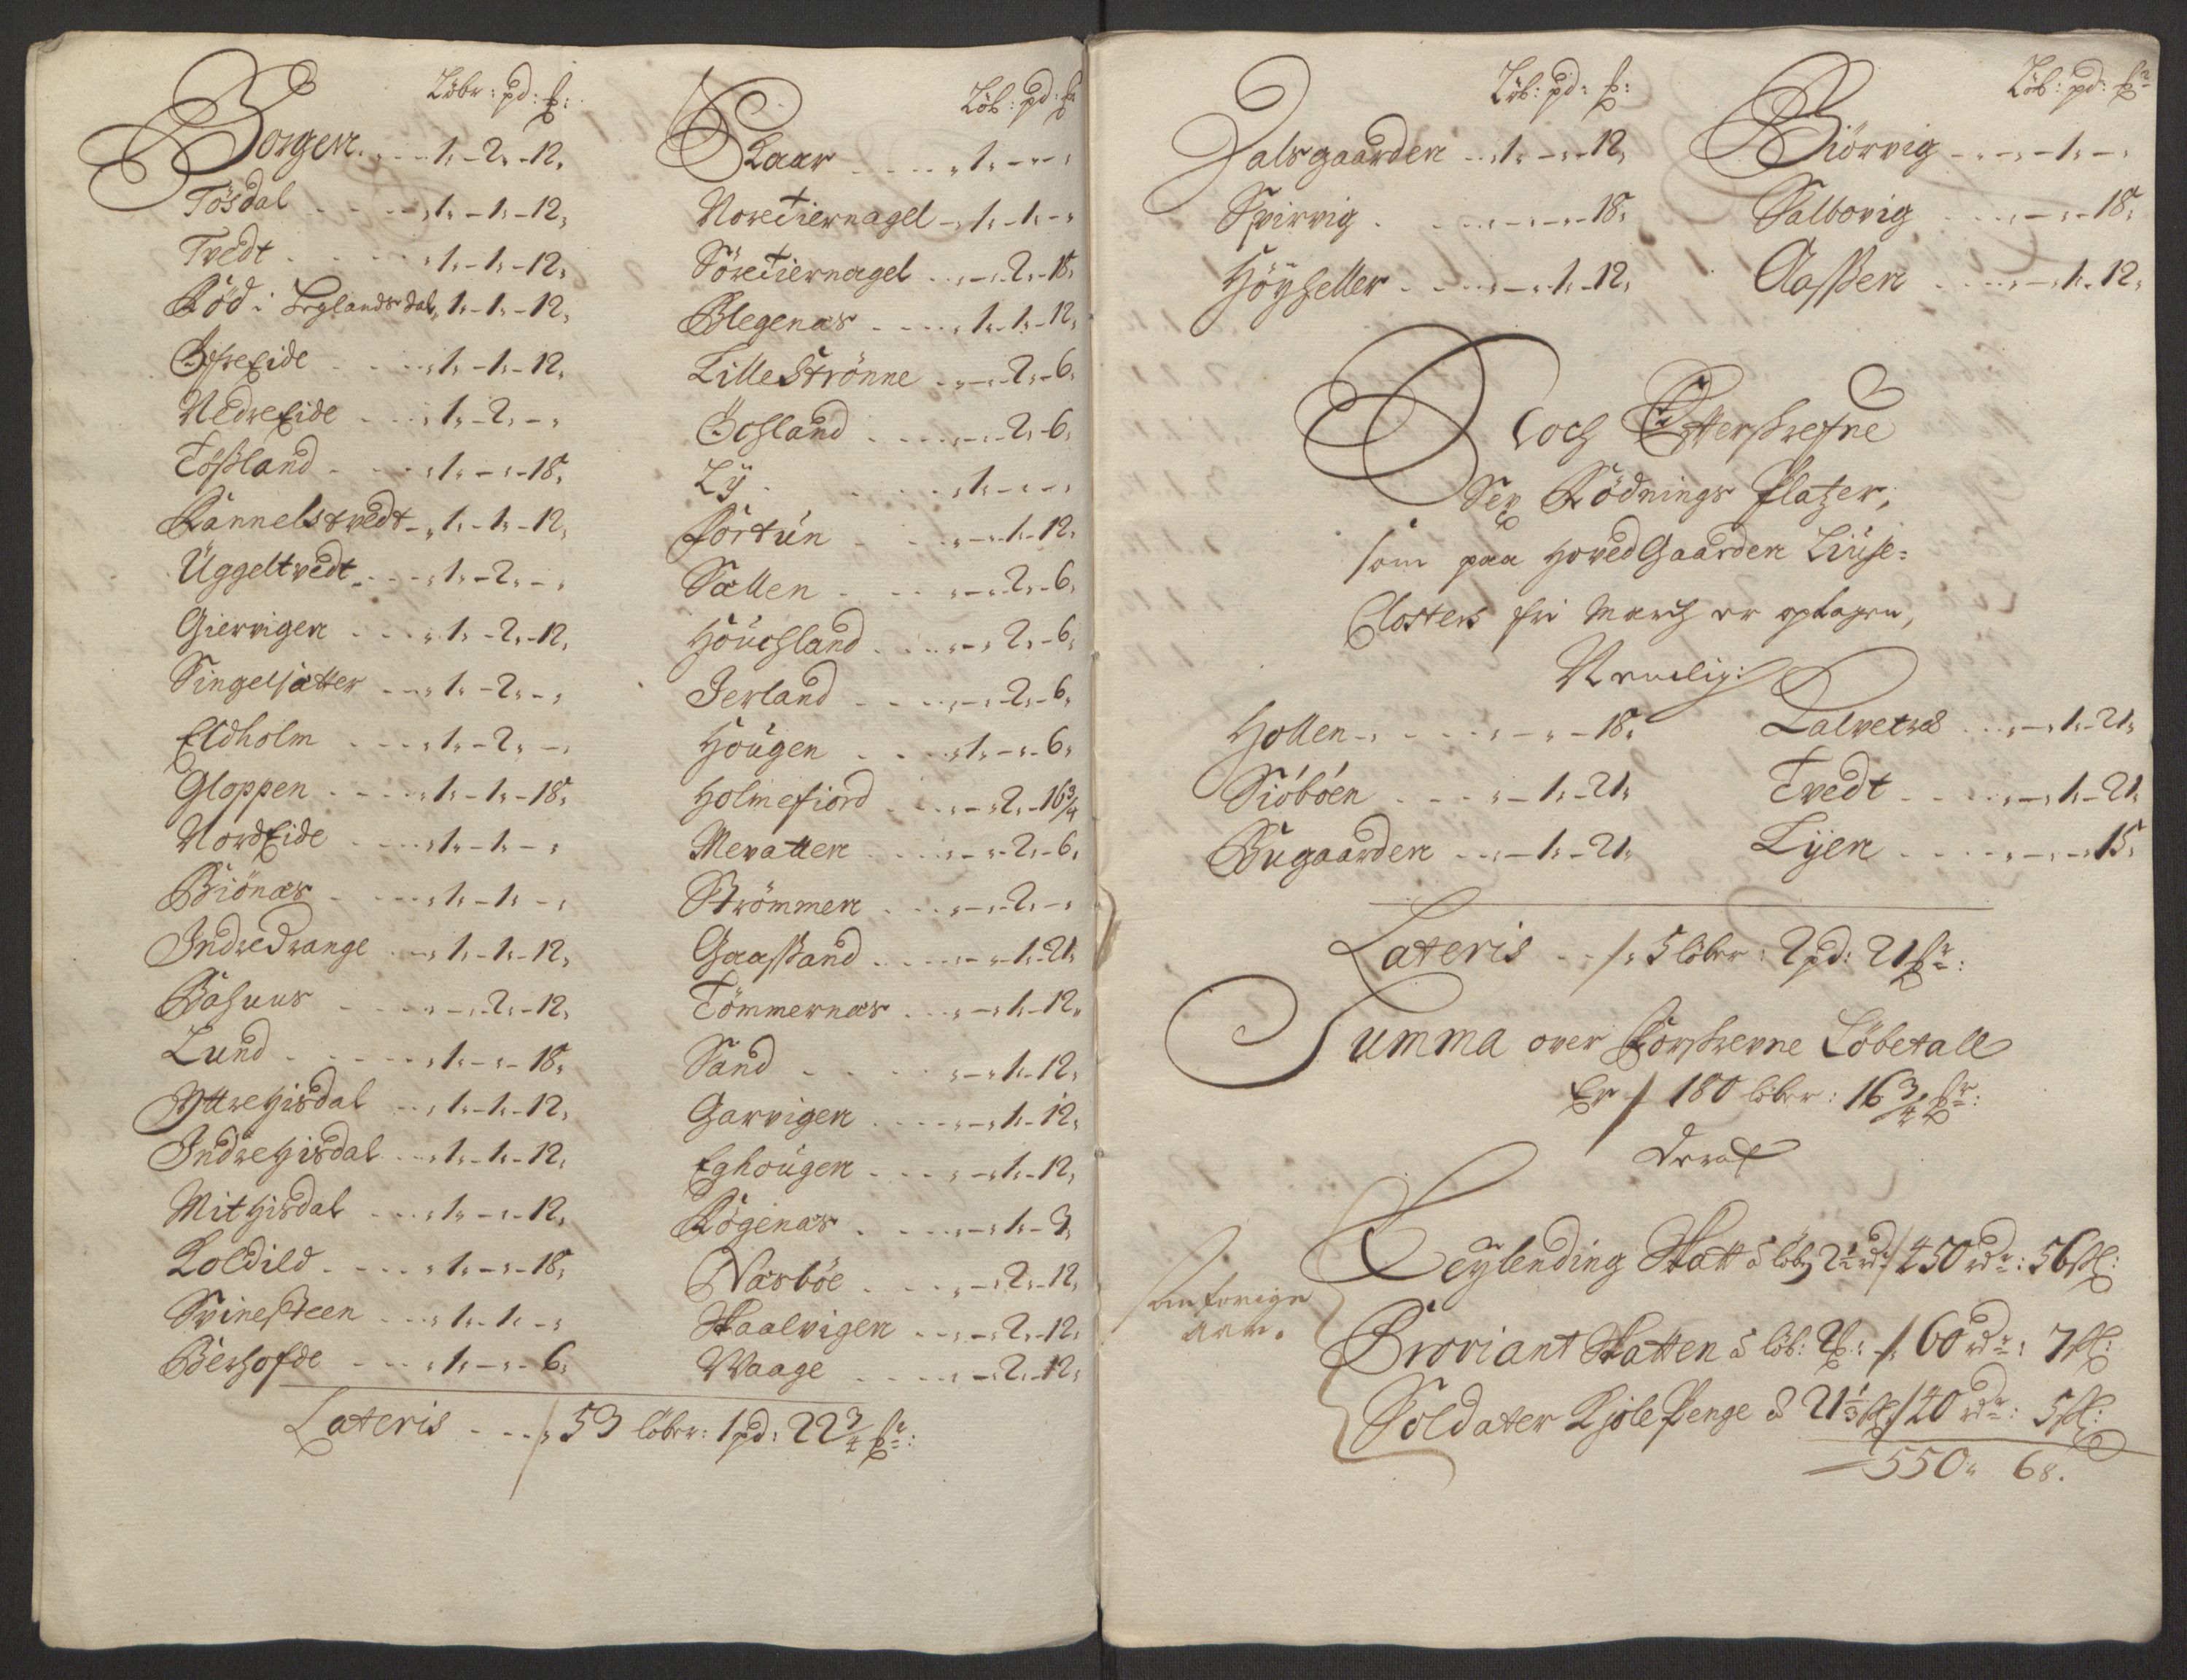 Löbr: pd: ℔:
Borgen . . . 1. - 2. - 12.
Tösdal . . . 1. - 1. - 12.
Tvedt . . . 1. - 1. - 12.
Röd i Leglandsdal 1. - 1. - 12.
Øfre Eide . . . 1. - 1. - 12.
Nedre Eide . . . 1. - 2. - .
Tößland . . . 1. - . - 18.
Rannelstvedt - 1. - 1. - 12.
Üggeltvedt . . . 1. - 2. - .
Giervigen . . . 1. - 2. - 12.
Singelsætter . . . 1. - 2. - .
Eldholm . . . 1. - 2. - .
Gloppen . . . 1. - 1. - 18.
Nord Eide . . . 1. - 1. - .
Biönæs . . . 1. - 1. - .
Indre Drange . . . 1. - 1. - 12.
Bahuus . . . - . 2. - 12.
Lund . . . 1. - . - 18.
Yttre Hisdal . . . 1. - 1. - 12.
Indre Hisdal . . . 1. - 1. - 12.
Mit Hisdal . . . 1. - . - 12.
Koldild . . . 1. - . - 18.
Svinesteen . . . 1. - 1. - .
Berhofde . . . 1. - . - 6.
Löb: pd: ℔
Skaar . . . 1. - . - .
Nore Tiernagel - 1. - 1. - .
Söre Tiernagel . . . - . 2. - 18.
Blegenæs . . . 1. - 1. - 12.
Lille Strönne . . . - . 2. - 6.
Hohland . . . - . 2. - 6.
Lÿ . . . 1. - . - .
Fortün . . . - . 1. - 12.
Sællen . . . - . 2. - 6.
Höuchland . . . - . 2. - 6.
Jerland . . . - . 2. - 6.
Hougen . . . 1. - . - 6.
Holmefiord . . . - . 2. - 16¾
Mevatten . . . - . 2. - 6.
Strömmen . . . - . 2. - .
Gaaßand . . . - . 1. - 21.
Tömmernæs . . . - . 1. - 12.
Sand . . . - . 1. - 12.
Garvigen . . . - . 1. - 12.
Eghougen . . . - . 1. - 12.
Rögenæs . . . - . 1. - 3.
Næsböe . . . - . 2. - 12.
Skaalvigen . . . - . 2. - 12.
Waage . . . - . 2. - 12.
Lateris . . . 53 löber: 1 pd: 22¾ ℔r:
Löb: pd: ℔:
Dalsgaarden . . . 1. - . - 12.
Spirvig . . . - . - 18.
Höyheller . . . - . 1. - 12.
Löb: pd: ℔r
Biörvig - . . . - 1. - .
Salbovig . . . - . - 18.
Aaßen . . . - . 1. - 12.
Noch Effterskrefne
Sex Rödnings Platzer,
som paa Hoved Gaarden Liuse=
Closters fri March er optagen,
Nemlig:
Hollen . . . - . - 18.
Siöbóen . . . - 1. - 21.
Bugaarden . . . - 1. - 21.
Dalvetræ . . . - . 1. - 21.
Tvedt . . . - . 1. - 21.
Lÿen . . . - . - 15.
Lateris . . . 5 löber: 2 pd: 21 ℔r:
Summa over Forskrevne Löbetall
Er / 180 löber: 16¾ ℔r:
Deraf
Leylending Skatt à löb 2½ rd / 450 rdr: 56 sk:
Proviant Skatten à löb: / 60 rdr: 7 sk:
Soldater Kjole Penge à 21⅓ sk / 40 rdr: 5 sk:
550. 68.
som forige
aar.